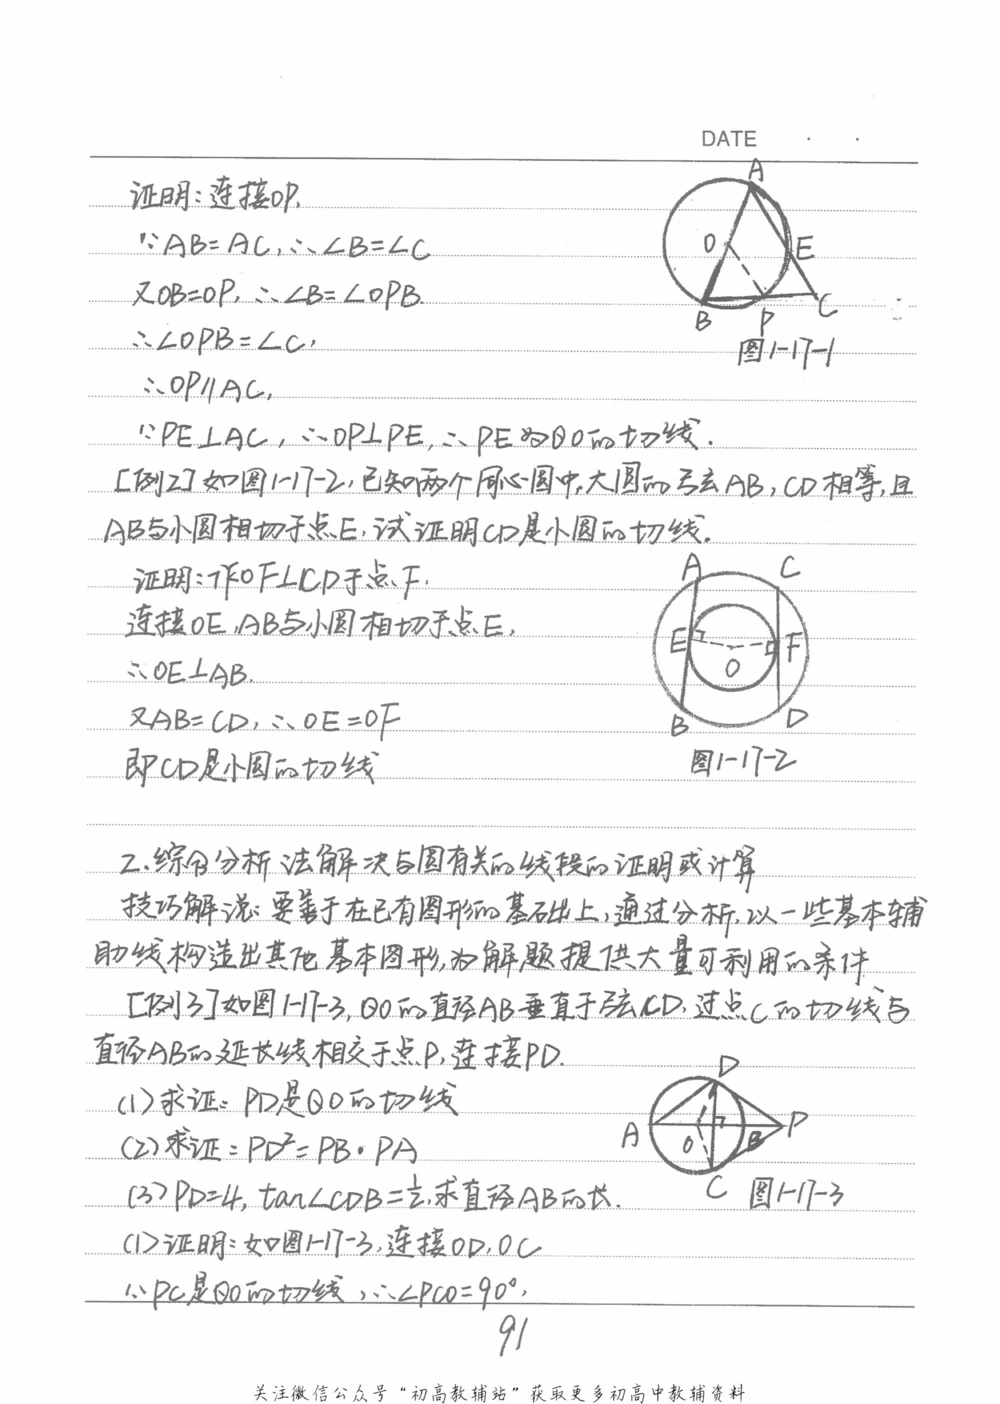 DATE
证明:连接OP.
∵AB=AC,∴∠B=∠C
又OB=OP,∴∠B=∠OPB.
∴∠OPB=∠C,
∴OP∥AC,
∵PE⊥AC,∴OP⊥PE,∴PE为⊙O的切线.
A
O
E
B
P
C
图1-17-1
[例2]如图1-17-2,已知两个同心圆中,大圆的弓弦AB,CD相等,且
AB与小圆相切于点E,试证明CD是小圆的切线.
证明:作OF⊥CD于点F.
连接OE,AB与小圆相切于点E,
∴OE⊥AB.
又AB=CD,∴OE=OF
即CD是小圆的切线
A
C
E
F
O
B
D
图1-17-2
2.综合分析法解决与圆有关的线段的证明或计算
技巧解说:要善于在已有图形的基础上,通过分析,以一些基本辅
助线构造出其他基本图形,为解题提供大量可利用的条件
[例3]如图1-17-3,⊙O的直径AB垂直于弦CD,过点C的切线与
直径AB的延长线相交于点P,连接PD.
(1)求证:PD是⊙O的切线
(2)求证:PD²=PB·PA
(3)PD=4,tan∠CDB=½,求直径AB的长.
D
A
O
B
P
C
图1-17-3
(1)证明:如图1-17-3,连接OD,OC
∵PC是⊙O的切线,∴∠PCO=90°,
91
关注微信公众号“初高教辅站”获取更多初高中教辅资料